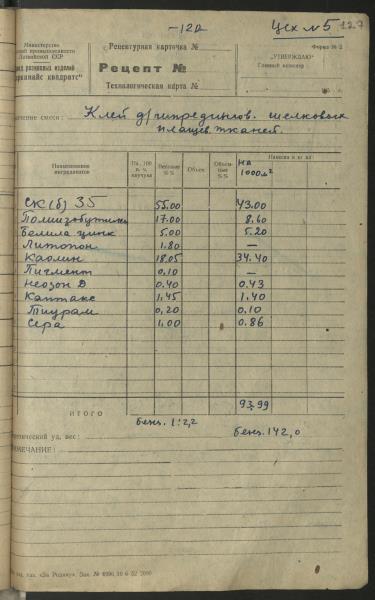 -122 Цех №5 127
Министерство
промышленности
Латвийской ССР
резиновых изделий
"арканайс квадратс"
Рецептурная карточка №
Рецепт №
Технологическая карта №
Форма № 2
„УТВЕРЖДАЮ"
Главный инженер
чение смеси: Клей д/шпредингов. шелковых
плащев. тканей.
Наименование ингредиентов
На 100 в. ч. каучука
Весовые %%
Объем
Объемные %%
Навеска в кг на
на 1000 м²
СК(б) 35 55.00 43.00
Полиизобутилен 17.00 8.60
Белила цинк 5.00 5.20
Литопон 1.80 —
Каолин 18.05 34.40
Пигмент 0.10 —
Неозон Д 0.40 0.43
Каптакс 1.45 1.40
Тиурам 0,20 0.10
Сера 1.00 0.86
93,99
ИТОГО
бенз. 1:2,2 бенз. 142,0
уд. вес:
МЕЧАНИЕ:
тип. „За Родину". Зак. № 6996